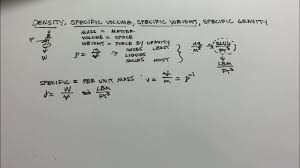 DENSITY, SPECIFIC VOLUME, SPECIFIC WEIGHT, SPECIFIC GRAVITY
MASS = MATTER
VOLUME = SPACE
WEIGHT = FORCE BY GRAVITY
W
ρ = m/V GASES LEAST
LIQUIDS
SOLIDS MOST
SLUG/FT³
LBM/FT³
SPECIFIC = PER UNIT MASS v = V/m = ρ⁻¹
γ = W/V